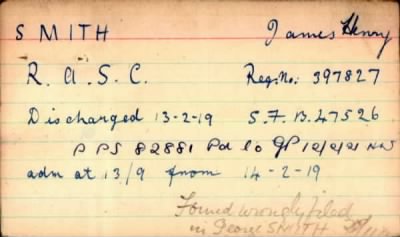 SMITH James Henry
R.A.S.C. Reg. No: 397827
Discharged 13-2-19 S.F.B.47526
P PS 82881 Pd to GP 12/2/21
adm at 13/9 from 14-2-19
Found wrongly filed
in George SMITH